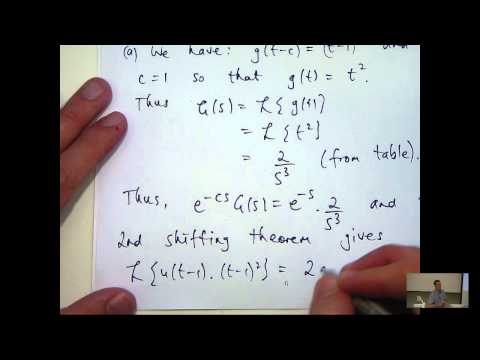 (a) We have: g(t-c) = (t-1) and
c=1 so that g(t) = t².
Thus G(s) = ℒ{g(t)}
= ℒ{t²}
= 2/s³ (from table).
Thus, e^{-cs} G(s) = e^{-s} . 2/s³ and
2nd shifting theorem gives
ℒ{u(t-1).(t-1)²} = 2